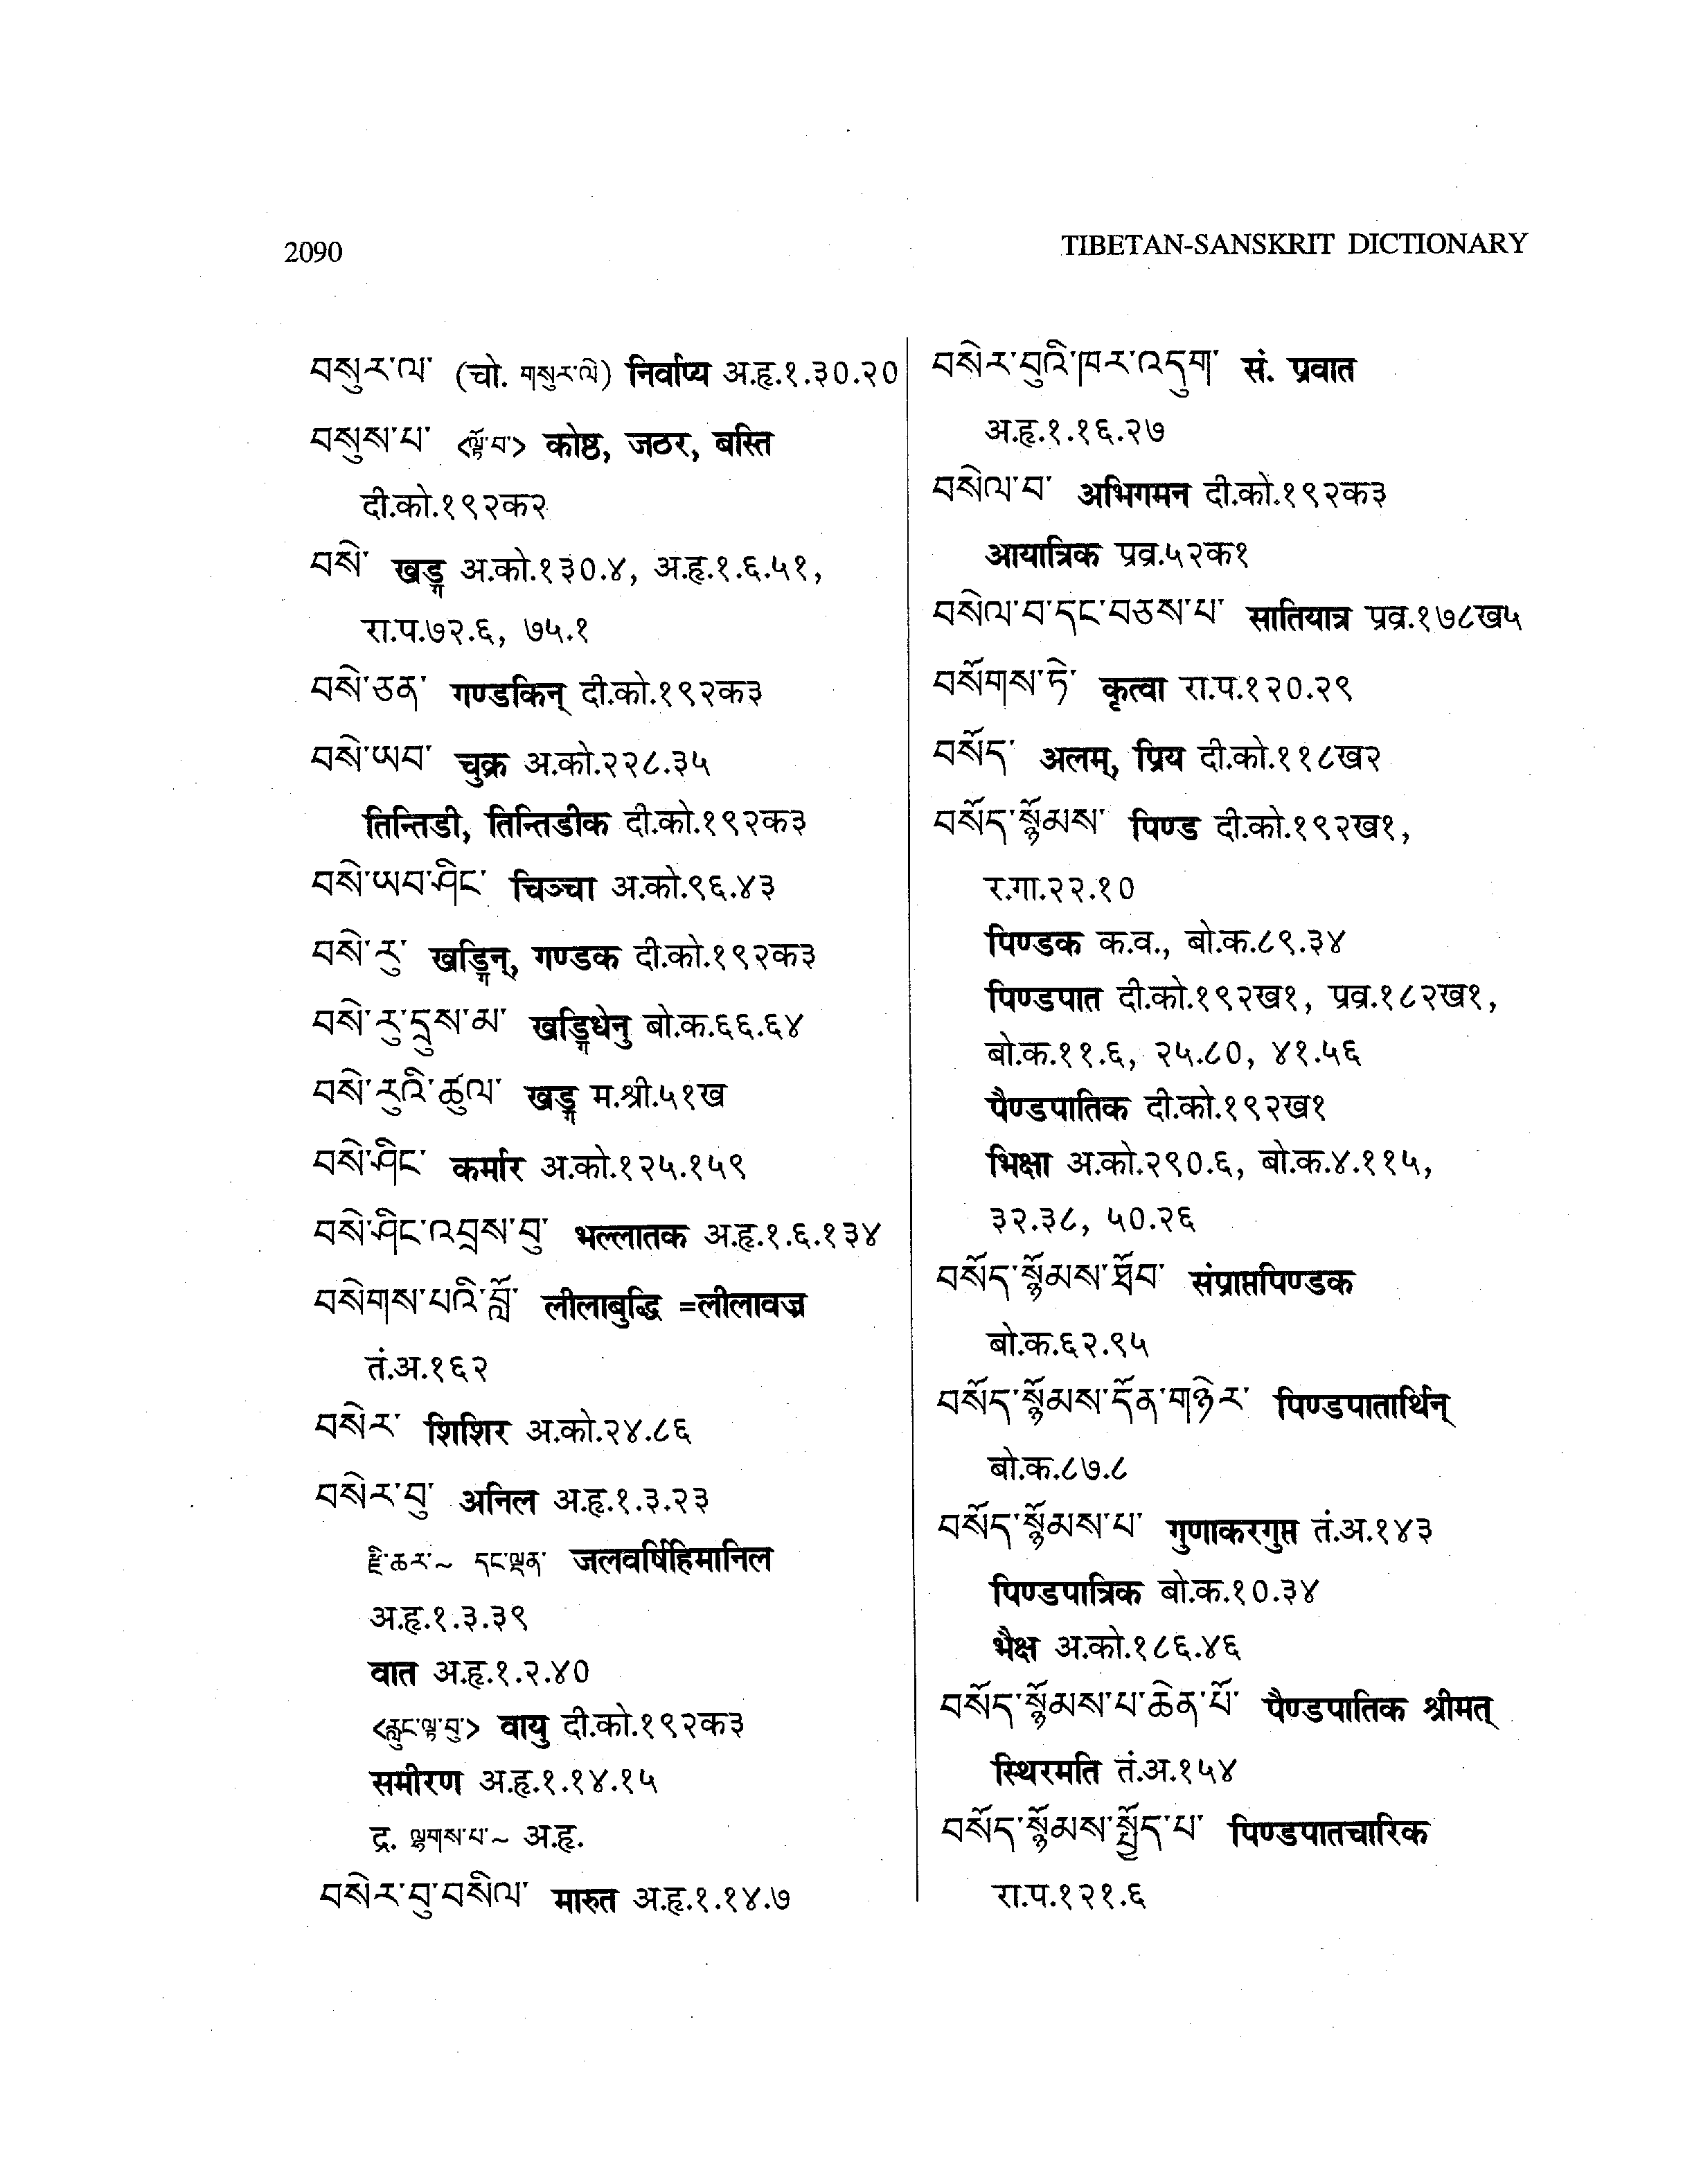 2090
TIBETAN-SANSKRIT DICTIONARY
བསུར་ལ་ (चो. གསུར་ལེ) निर्वाप्य अ.हृ.१.३०.२०
བསུས་པ་ <ལྟོ་བ་> कोष्ठ, जठर, बस्ति
दी.को.१९२क२
བསེ་ खड्ग अ.को.१३०.४, अ.हृ.१.६.५१,
रा.प.७२.६, ७५.१
བསེ་ཅན་ गण्डकिन् दी.को.१९२क३
བསེ་ཡབ་ चुक्र अ.को.२२८.३५
तिन्तिडी, तिन्तिडीक दी.को.१९२क३
བསེ་ཡབ་ཤིང་ चिञ्चा अ.को.९६.४३
བསེ་རུ་ खड्गिन्, गण्डक दी.को.१९२क३
བསེ་རུ་དྲུས་མ་ खड्गिधेनु बो.क.६६.६४
བསེ་རུའི་ཚུལ་ खड्ग म.श्री.५१ख
བསེ་ཤིང་ कर्मार अ.को.१२५.१५९
བསེ་ཤིང་འབྲས་བུ་ भल्लातक अ.हृ.१.६.१३४
བསེགས་པའི་བློ་ लीलाबुद्धि =लीलावज्र
तं.अ.१६२
བསེར་ शिशिर अ.को.२४.८६
བསེར་བུ་ अनिल अ.हृ.१.३.२३
རྫི་ཆར་~ དང་ལྡན་ जलवर्षिहिमानिल
अ.हृ.१.३.३९
वात अ.हृ.१.२.४०
<རླུང་ལྟ་བུ་> वायु दी.को.१९२क३
समीरण अ.हृ.१.१४.१५
द्र. ལྷགས་པ་~ अ.हृ.
བསེར་བུ་བསིལ་ मारुत अ.हृ.१.१४.७
བསེར་བུའི་ཁར་འདུག་ सं. प्रवात
अ.हृ.१.१६.२७
བསེལ་བ་ अभिगमन दी.को.१९२क३
आयात्रिक प्रव्र.५२क१
བསེལ་བ་དང་བཅས་པ་ सातियात्र प्रव्र.१७८ख५
བསོགས་ཏེ་ कृत्वा रा.प.१२०.२९
བསོད་ अलम्, प्रिय दी.को.११८ख२
བསོད་སྙོམས་ पिण्ड दी.को.१९२ख१,
र.गा.२२.१०
पिण्डक क.व., बो.क.८९.३४
पिण्डपात दी.को.१९२ख१, प्रव्र.१८२ख१,
बो.क.११.६, २५.८०, ४१.५६
पैण्डपातिक दी.को.१९२ख१
भिक्षा अ.को.२९०.६, बो.क.४.११५,
३२.३८, ५०.२६
བསོད་སྙོམས་ཐོབ་ संप्राप्तपिण्डक
बो.क.६२.९५
བསོད་སྙོམས་དོན་གཉེར་ पिण्डपातार्थिन्
बो.क.८७.८
བསོད་སྙོམས་པ་ गुणाकरगुप्त तं.अ.१४३
पिण्डपात्रिक बो.क.१०.३४
भैक्ष अ.को.१८६.४६
བསོད་སྙོམས་པ་ཆེན་པོ་ पैण्डपातिक श्रीमत्
स्थिरमति तं.अ.१५४
བསོད་སྙོམས་སྤྱོད་པ་ पिण्डपातचारिक
रा.प.१२१.६